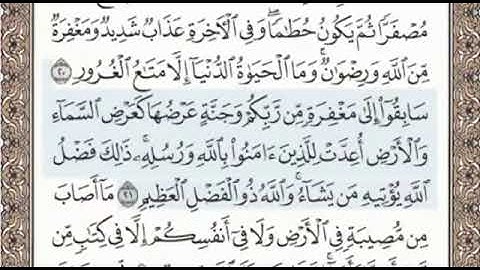 مُصْفَرًّا ثُمَّ يَكُونُ حُطَٰمًا ۖ وَفِى ٱلْأَخِرَةِ عَذَابٌ شَدِيدٌ وَمَغْفِرَةٌ
مِّنَ ٱللَّهِ وَرِضْوَٰنٌ ۚ وَمَا ٱلْحَيَوٰةُ ٱلدُّنْيَآ إِلَّا مَتَٰعُ ٱلْغُرُورِ ٢٠
سَابِقُوٓا۟ إِلَىٰ مَغْفِرَةٍ مِّن رَّبِّكُمْ وَجَنَّةٍ عَرْضُهَا كَعَرْضِ ٱلسَّمَآءِ
وَٱلْأَرْضِ أُعِدَّتْ لِلَّذِينَ ءَامَنُوا۟ بِٱللَّهِ وَرُسُلِهِۦ ۚ ذَٰلِكَ فَضْلُ
ٱللَّهِ يُؤْتِيهِ مَن يَشَآءُ ۚ وَٱللَّهُ ذُو ٱلْفَضْلِ ٱلْعَظِيمِ ٢١ مَآ أَصَابَ
مِن مُّصِيبَةٍ فِى ٱلْأَرْضِ وَلَا فِىٓ أَنفُسِكُمْ إِلَّا فِى كِتَٰبٍ مِّن